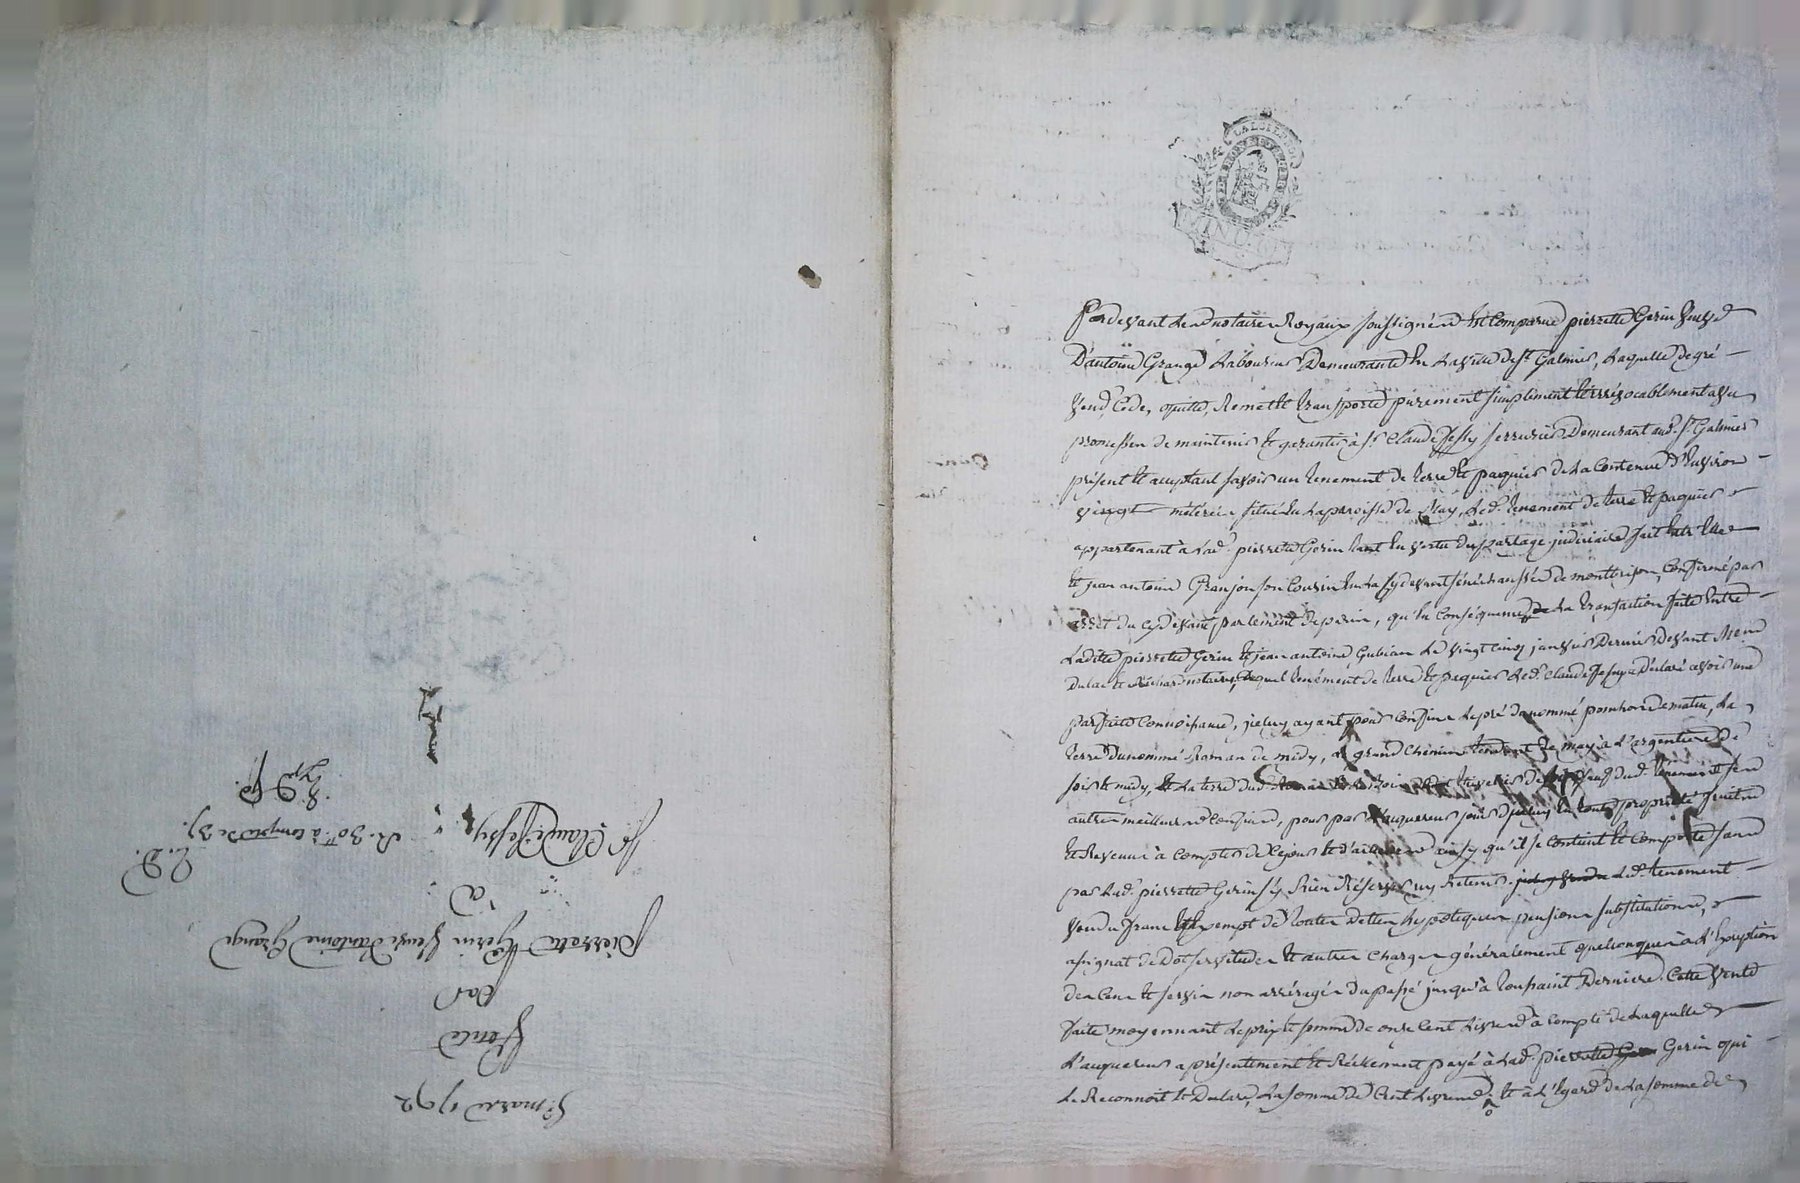 8 mars 1792
Vente
Par
pierrette Gerin Veuve d'antoine Grange
à
Sr. Claude Jessy
R. 30 s. à compte de 3
LA LOI
LE ROI
Pardevant les notaires Royaux soussignés Est Comparue pierrette Gerin Veuve
D'antoine Grange Laboureur Demeurante En la ville de St. Galmier, Laquelle de gré
Vend, Cede, quitte, Remet Et transporte purement simplement Et irrévocablement avec
promesses de maintenir Et garantir à Sr. Claude Jessy serrurier Demeurant aud. St. Galmier
présent Et acceptant savoir un tenement de terre Et paquier de La Contenue D'Environ
vingt méterée situé En La paroisse de May, Led. tenement de terre Et paquier
appartenant à Lad. pierrette Gerin tant En vertu du partage judiciaire fait Entre Elle
Et jean antoine Granjon son Cousin En La cy devant sénéchaussée de montbrison, Confirmé par
arrêt du cy devant parlement de paris, qu'En Conséquence de La transaction faite Entre
Ladite pierrette Gerin Et jean antoine Gubian Le vingt cinq janvier Dernier devant Mes
Dulac Et Richard notaires, Lequel tenement de terre Et paquier Led. Claude Jessy a Déclaré avoir une
parfaite Connoissance, jceluy ayant pour Confins Le pré du nommé ponchon de matin, La
terre du nommé Roman de midy, Le grand Chemin tendant de may à L'argentiere de
soir Et midy, Et La terre dud.
autres meilleurs Confins, pour par L'acquereur jouir d'jceluy En toute propriété fruits
Et Revenus à Compter de Ce jour Et d'ailleurs ainsy qu'il se Contient Et Comporte sans
par Lad. pierrette Gerin s'y Rien Réserver ny Retenir Led. tenement
Vendu franc Et Exempt de toutes dettes hypoteques pensions substitutions,
asignat de Dot servitudes Et autres Charges généralement quelconques à L'Exception
des Cens Et servis non arréragés Du passé jusqu'à toussaint Derniere. Cette Vente
faite moyennant Le prix Et somme de onze Cent Livres à Compte de Laquelle
L'acquereur a présentement Et Réellement payé à Lad. pierrette Gerin qui
Le Reconnoit Et Déclare, La somme de Cent Livres, Et à L'Egard de La somme de